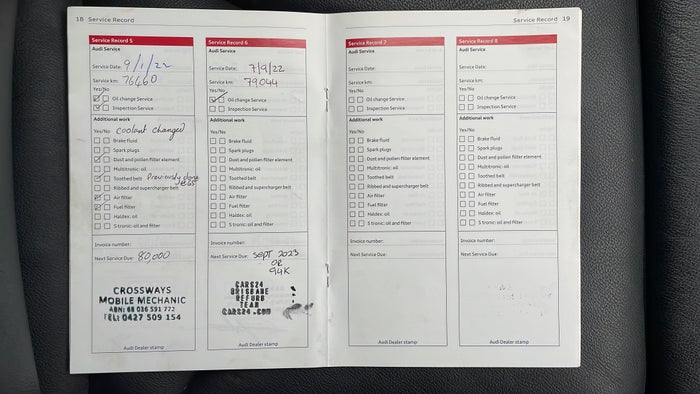 18 Service Record
Service Record 5
Audi Service
Service Date: 9/1/22
Service km: 76460
Yes/No
Oil change Service
Inspection Service
Additional work
Yes/No Coolant changed
Brake fluid
Spark plugs
Dust and pollen filter element
Multitronic: oil
Toothed belt Previously done
Ribbed and supercharger belt
Air filter
Fuel filter
Haldex: oil
S tronic: oil and filter
Invoice number:
Next Service Due: 80,000
CROSSWAYS
MOBILE MECHANIC
ABN: 66 036 591 772
TEL: 0427 509 154
Audi Dealer stamp
Service Record 6
Audi Service
Service Date: 7/9/22
Service km: 79044
Yes/No
Oil change Service
Inspection Service
Additional work
Yes/No
Brake fluid
Spark plugs
Dust and pollen filter element
Multitronic: oil
Toothed belt
Ribbed and supercharger belt
Air filter
Fuel filter
Haldex: oil
S tronic: oil and filter
Invoice number:
Next Service Due: SEPT 2023
OR
94K
CARS24
BRISBANE
REFURB
TEAM
CARS24.COM
Audi Dealer stamp
Service Record 19
Service Record 7
Audi Service
Service Date:
Service km:
Yes/No
Oil change Service
Inspection Service
Additional work
Yes/No
Brake fluid
Spark plugs
Dust and pollen filter element
Multitronic: oil
Toothed belt
Ribbed and supercharger belt
Air filter
Fuel filter
Haldex: oil
S tronic: oil and filter
Invoice number:
Next Service Due:
Audi Dealer stamp
Service Record 8
Audi Service
Service Date:
Service km:
Yes/No
Oil change Service
Inspection Service
Additional work
Yes/No
Brake fluid
Spark plugs
Dust and pollen filter element
Multitronic: oil
Toothed belt
Ribbed and supercharger belt
Air filter
Fuel filter
Haldex: oil
S tronic: oil and filter
Invoice number:
Next Service Due:
Audi Dealer stamp